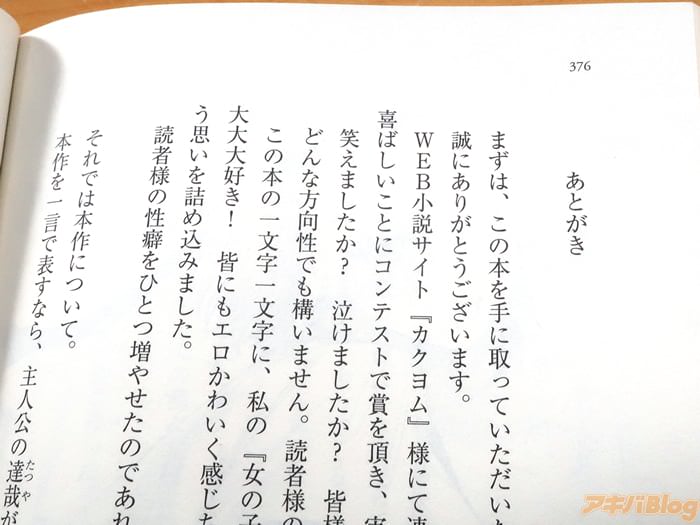 376
あとがき
まずは、この本を手に取っていただい
誠にありがとうございます。
WEB小説サイト『カクヨム』様にて連
喜ばしいことにコンテストで賞を頂き、実
笑えましたか？　泣けましたか？　皆様
どんな方向性でも構いません。読者様の
この本の一文字一文字に、私の『女の子
大大大好き！　皆にもエロかわいく感じた
う思いを詰め込みました。
読者様の性癖をひとつ増やせたのであれ
それでは本作について。
本作を一言で表すなら、主人公の達哉が
たつや
アキバBlog